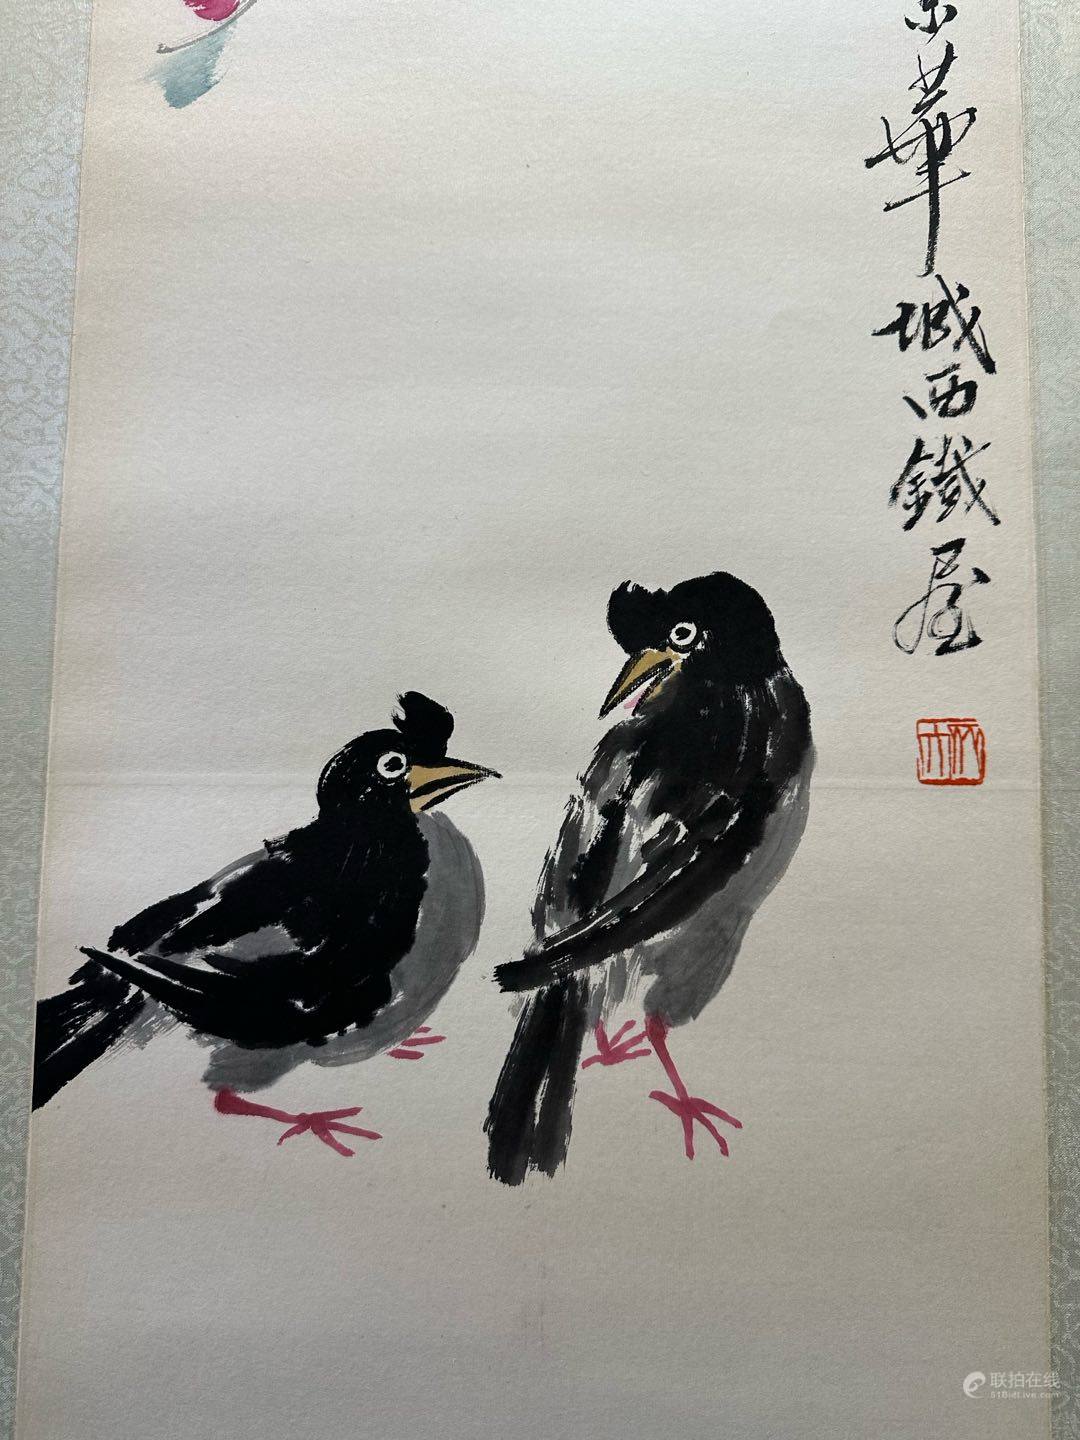 京華城西鐵屋
木人
联拍在线
51BidLive.com